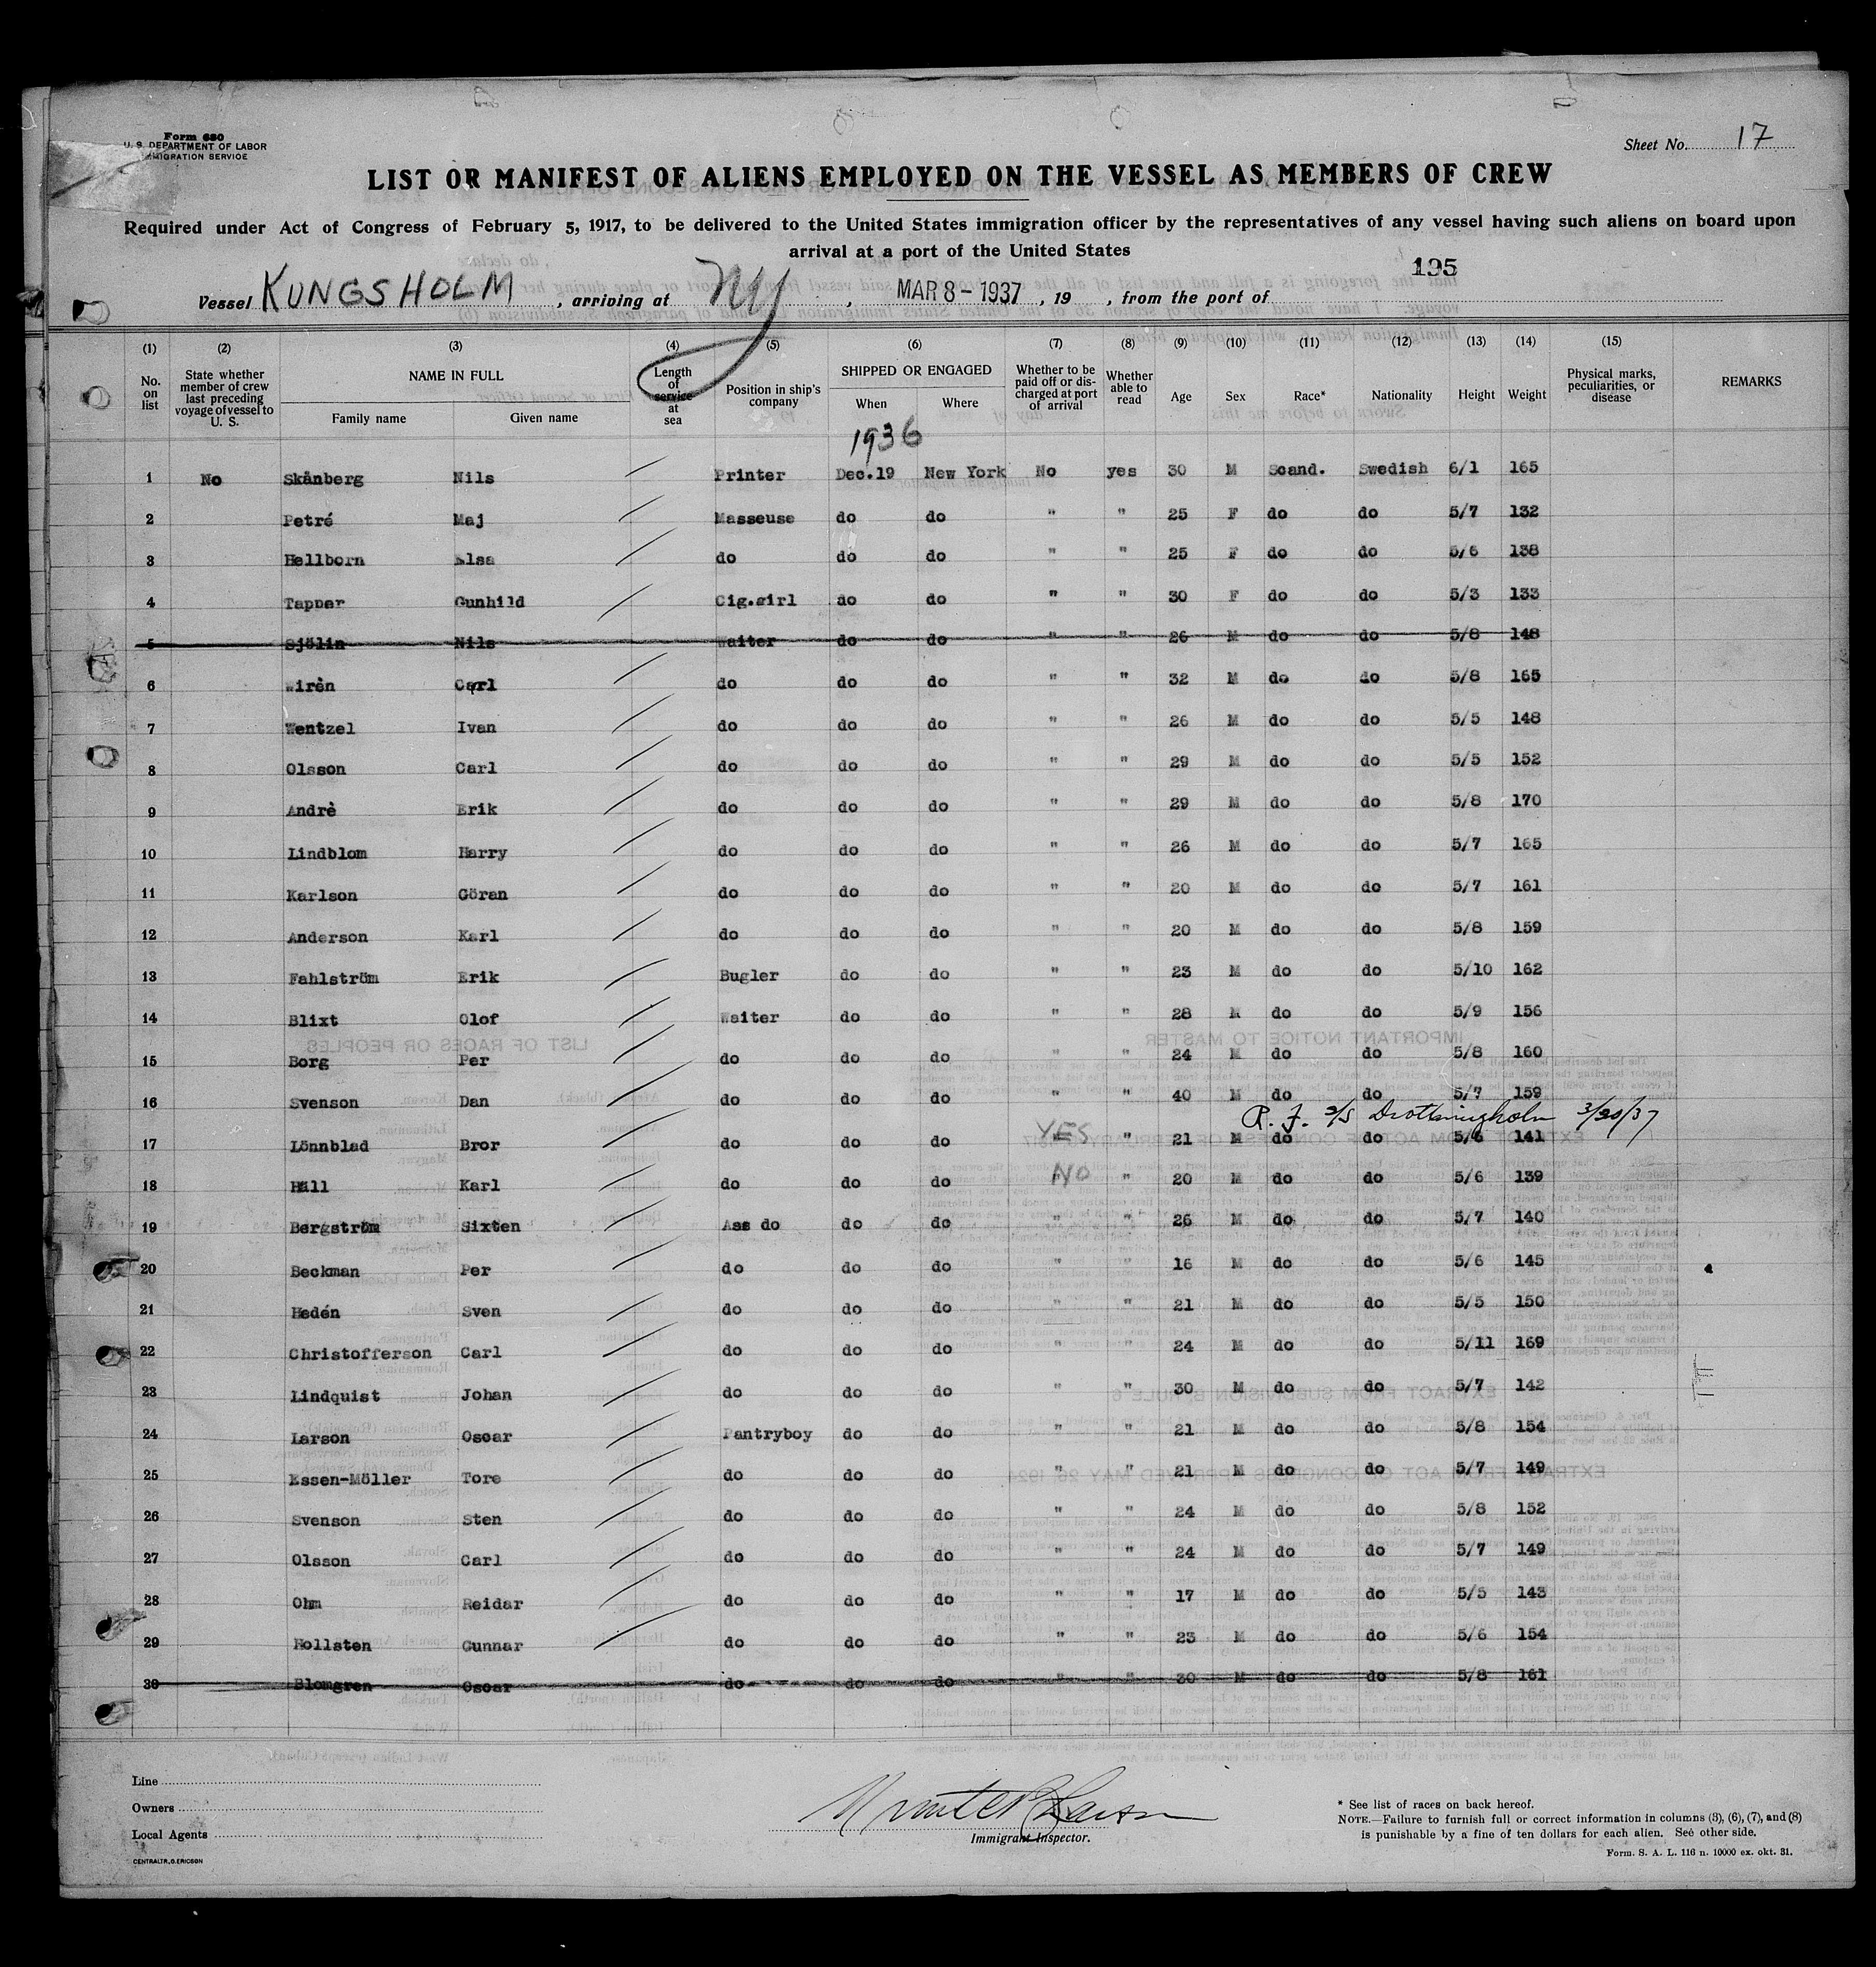 Form 680
U. S. DEPARTMENT OF LABOR
IMMIGRATION SERVICE
Sheet No. 17
LIST OR MANIFEST OF ALIENS EMPLOYED ON THE VESSEL AS MEMBERS OF CREW
Required under Act of Congress of February 5, 1917, to be delivered to the United States immigration officer by the representatives of any vessel having such aliens on board upon
arrival at a port of the United States
195
Vessel KUNGSHOLM, arriving at NY, MAR 8 - 1937, 19 , from the port of
(1) (2) (3) (4) (5) (6) (7) (8) (9) (10) (11) (12) (13) (14) (15)
No. on list State whether member of crew last preceding voyage of vessel to U. S. NAME IN FULL Family name Given name Length of service at sea Position in ship's company SHIPPED OR ENGAGED When Where Whether to be paid off or discharged at port of arrival Whether able to read Age Sex Race* Nationality Height Weight Physical marks, peculiarities, or disease REMARKS
1936
1 No Skånberg Nils Printer Dec.19 New York No yes 30 M Scand. Swedish 6/1 165
2 Petré Maj Masseuse do do " " 25 F do do 5/7 132
3 Hellborn Elsa do do do " " 25 F do do 5/6 138
4 Tapper Gunhild Cig.girl do do " " 30 F do do 5/3 133
5 Sjölin Nils Waiter do do " " 26 M do do 5/8 148
6 Wirèn Carl do do do " " 32 M do do 5/8 165
7 Wentzel Ivan do do do " " 26 M do do 5/5 148
8 Olsson Carl do do do " " 29 M do do 5/5 152
9 Andrè Erik do do do " " 29 M do do 5/8 170
10 Lindblom Harry do do do " " 26 M do do 5/7 165
11 Karlson Göran do do do " " 20 M do do 5/7 161
12 Anderson Karl do do do " " 20 M do do 5/8 159
13 Fahlström Erik Bugler do do " " 23 M do do 5/10 162
14 Blixt Olof Waiter do do " " 28 M do do 5/9 156
15 Borg Per do do do " " 24 M do do 5/8 160
16 Svenson Dan do do do " " 40 M do do 5/7 159
R. F. S/S Drottningholm 3/20/37
17 Lönnblad Bror do do do YES " 21 M do do 5/6 141
18 Häll Karl do do do NO " 20 M do do 5/6 139
19 Bergström Sixten Ass do do do " " 26 M do do 5/7 140
20 Beckman Per do do do " " 16 M do do 5/6 145
21 Hedén Sven do do do " " 21 M do do 5/5 150
22 Christofferson Carl do do do " " 24 M do do 5/11 169
23 Lindquist Johan do do do " " 30 M do do 5/7 142
24 Larson Oscar Pantryboy do do " " 21 M do do 5/8 154
25 Essen-Möller Tore do do do " " 21 M do do 5/7 149
26 Svenson Sten do do do " " 24 M do do 5/8 152
27 Olsson Carl do do do " " 24 M do do 5/7 149
28 Ohm Reidar do do do " " 17 M do do 5/5 143
29 Hollsten Gunnar do do do " " 23 M do do 5/6 154
30 Blomgren Oscar do do do " " 30 M do do 5/8 161
Line
Owners
Local Agents
CENTRALTR., G. ERICSON
Immigrant Inspector.
* See list of races on back hereof.
NOTE.—Failure to furnish full or correct information in columns (3), (6), (7), and (8)
is punishable by a fine of ten dollars for each alien. See other side.
Form. S. A. L. 116 n. 10000 ex. okt. 31.